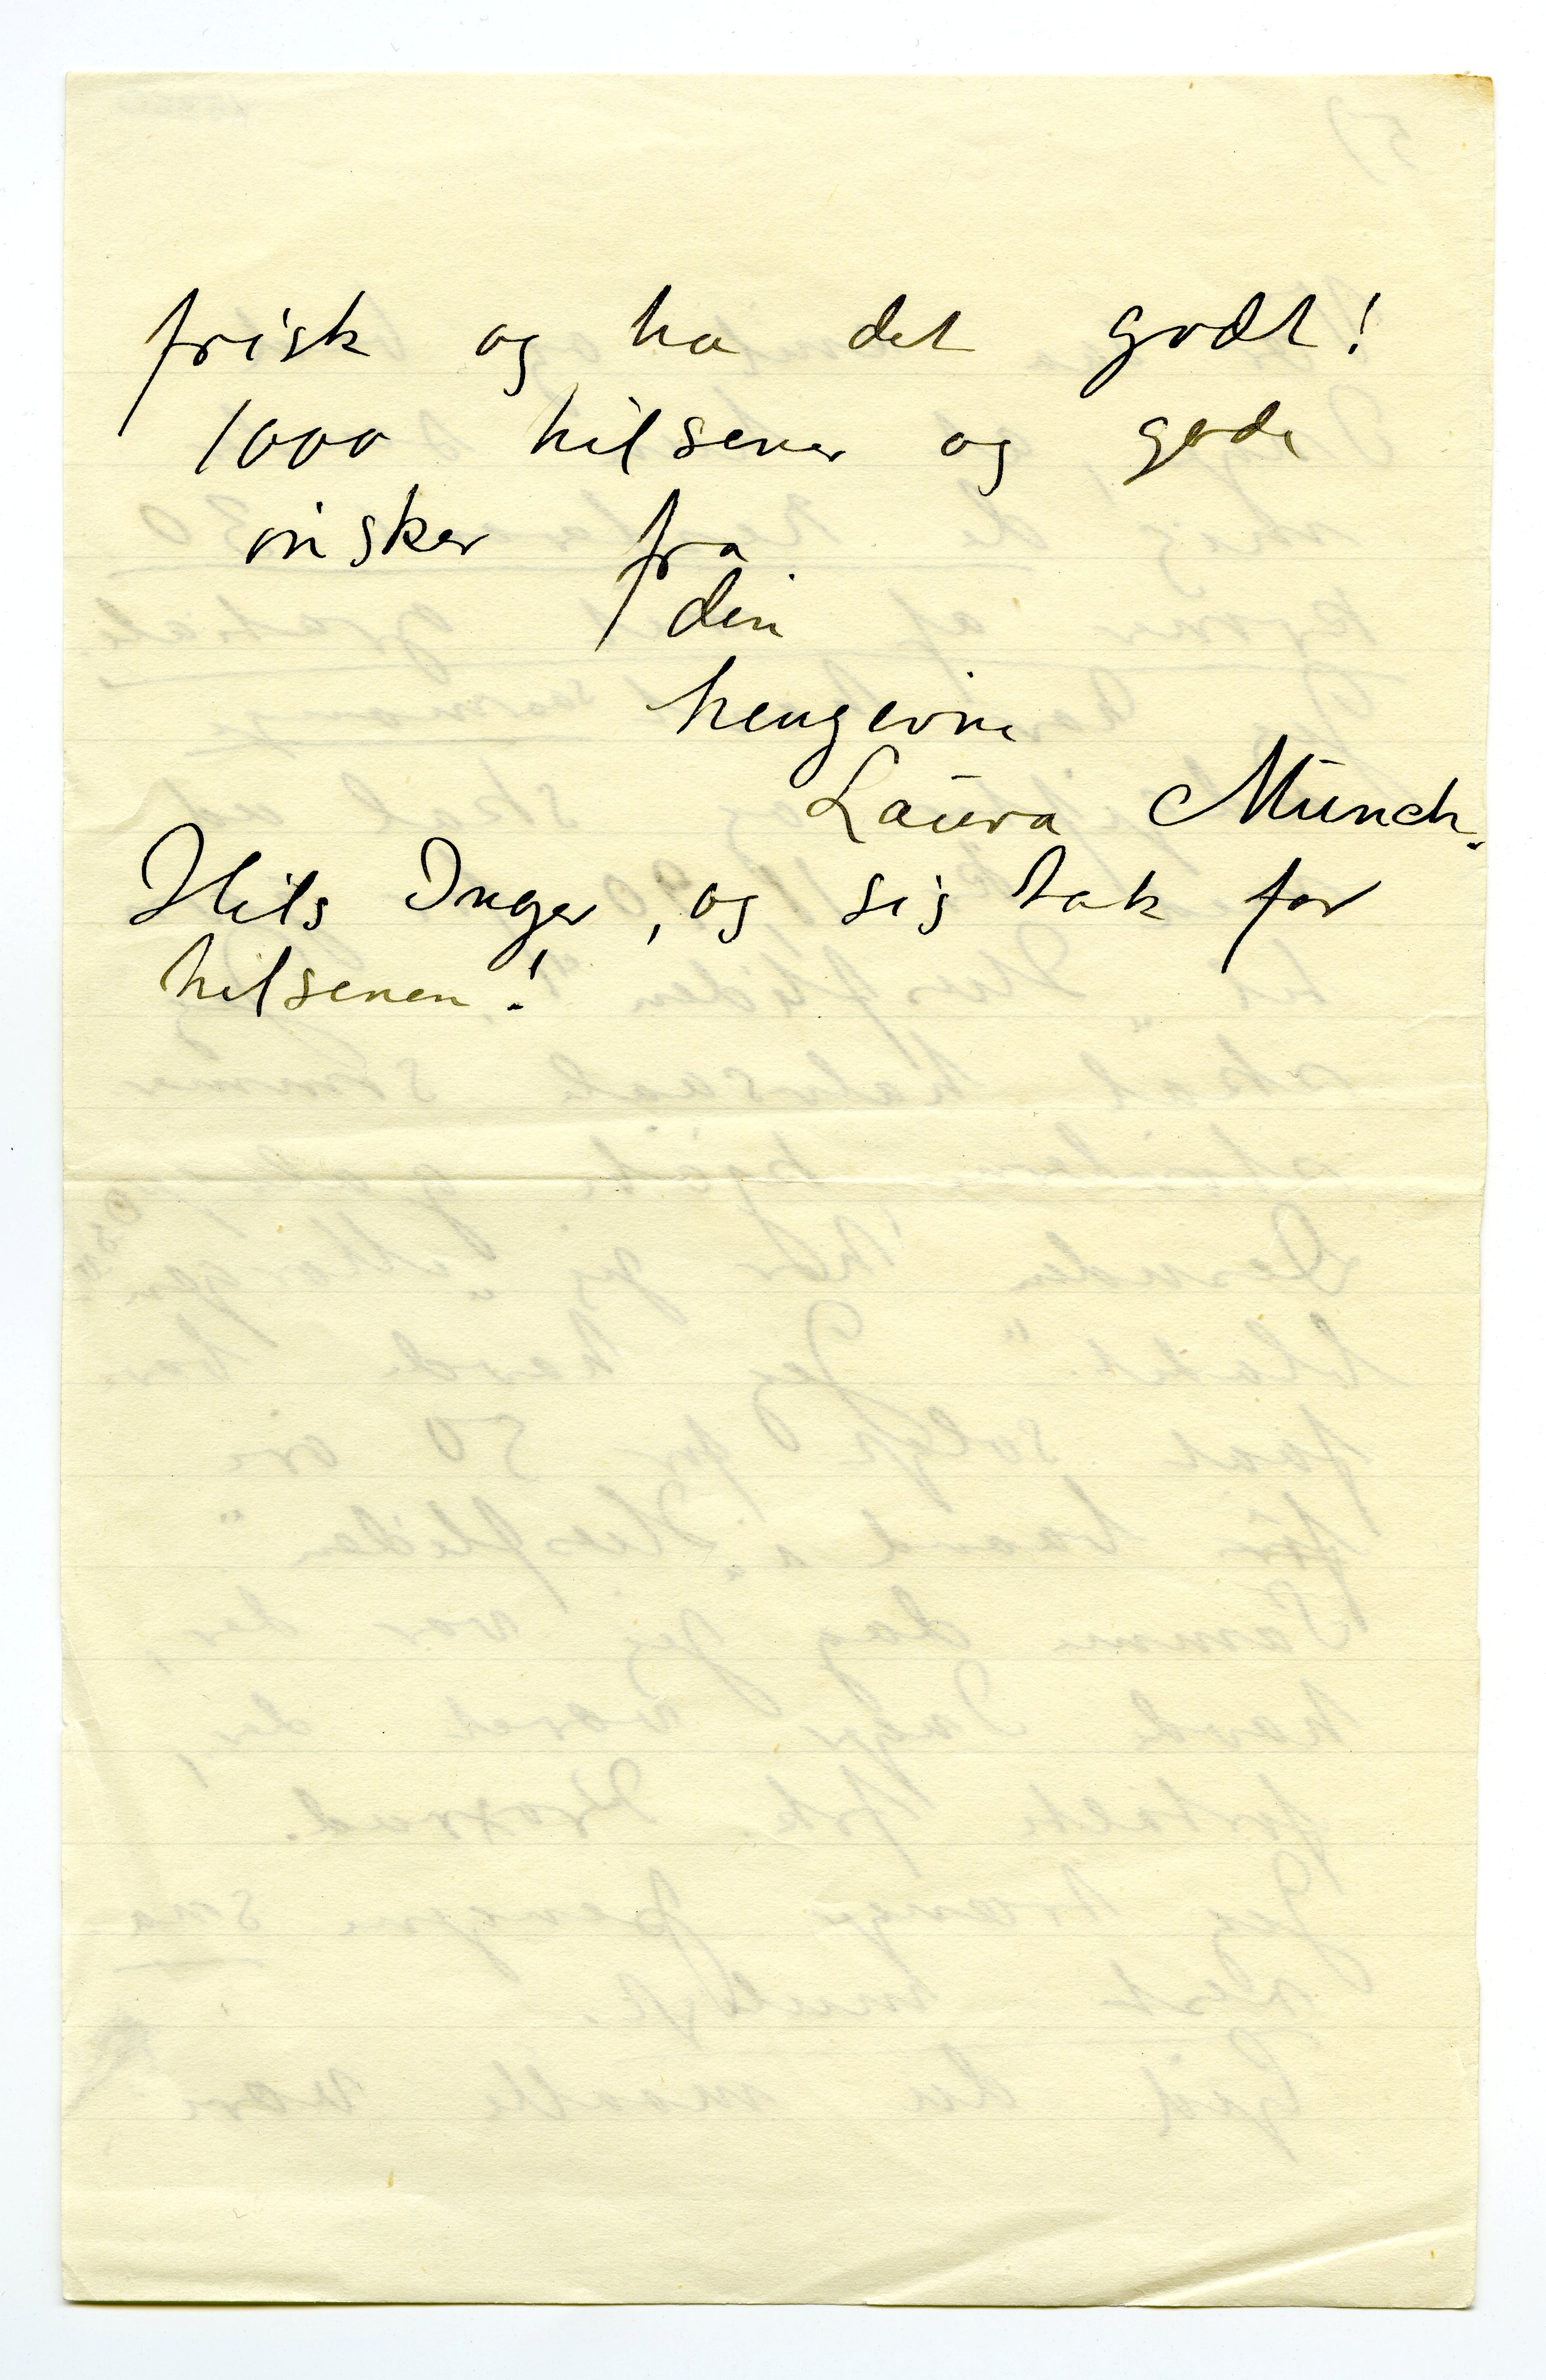 frisk og ha det godt!
1000 hilsener og gode
ønsker fra
din
hengivne
Laura Munch.
Hils Inger, og sig tak for
hilsenen!